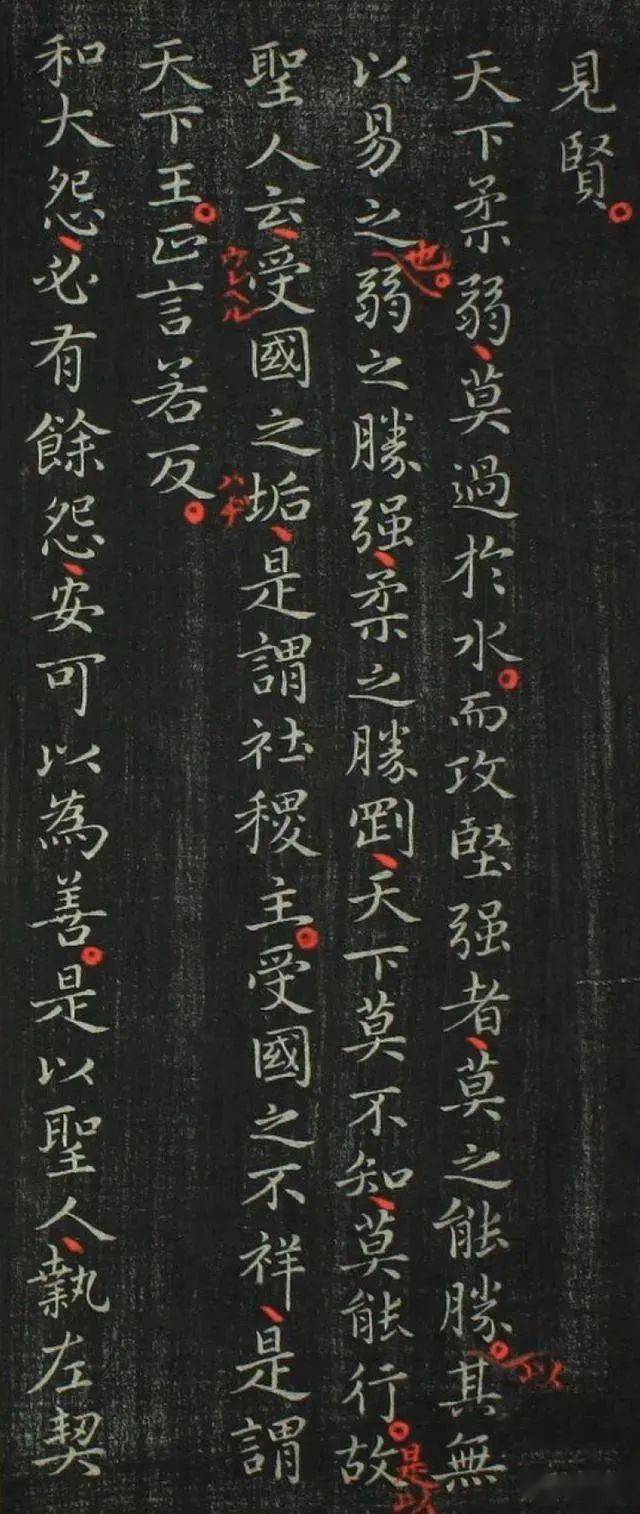 見賢。
天下柔弱、莫過於水。而攻堅强者、莫之能勝。其無
以
以易之弱之勝强、柔之勝剛、天下莫不知、莫能行。故
也。
是以
聖人云、受國之垢、是謂社稷主。受國之不祥、是謂
ウレヘル
ハヂ
天下王。正言若反。
和大怨、必有餘怨、安可以為善。是以聖人、執左契